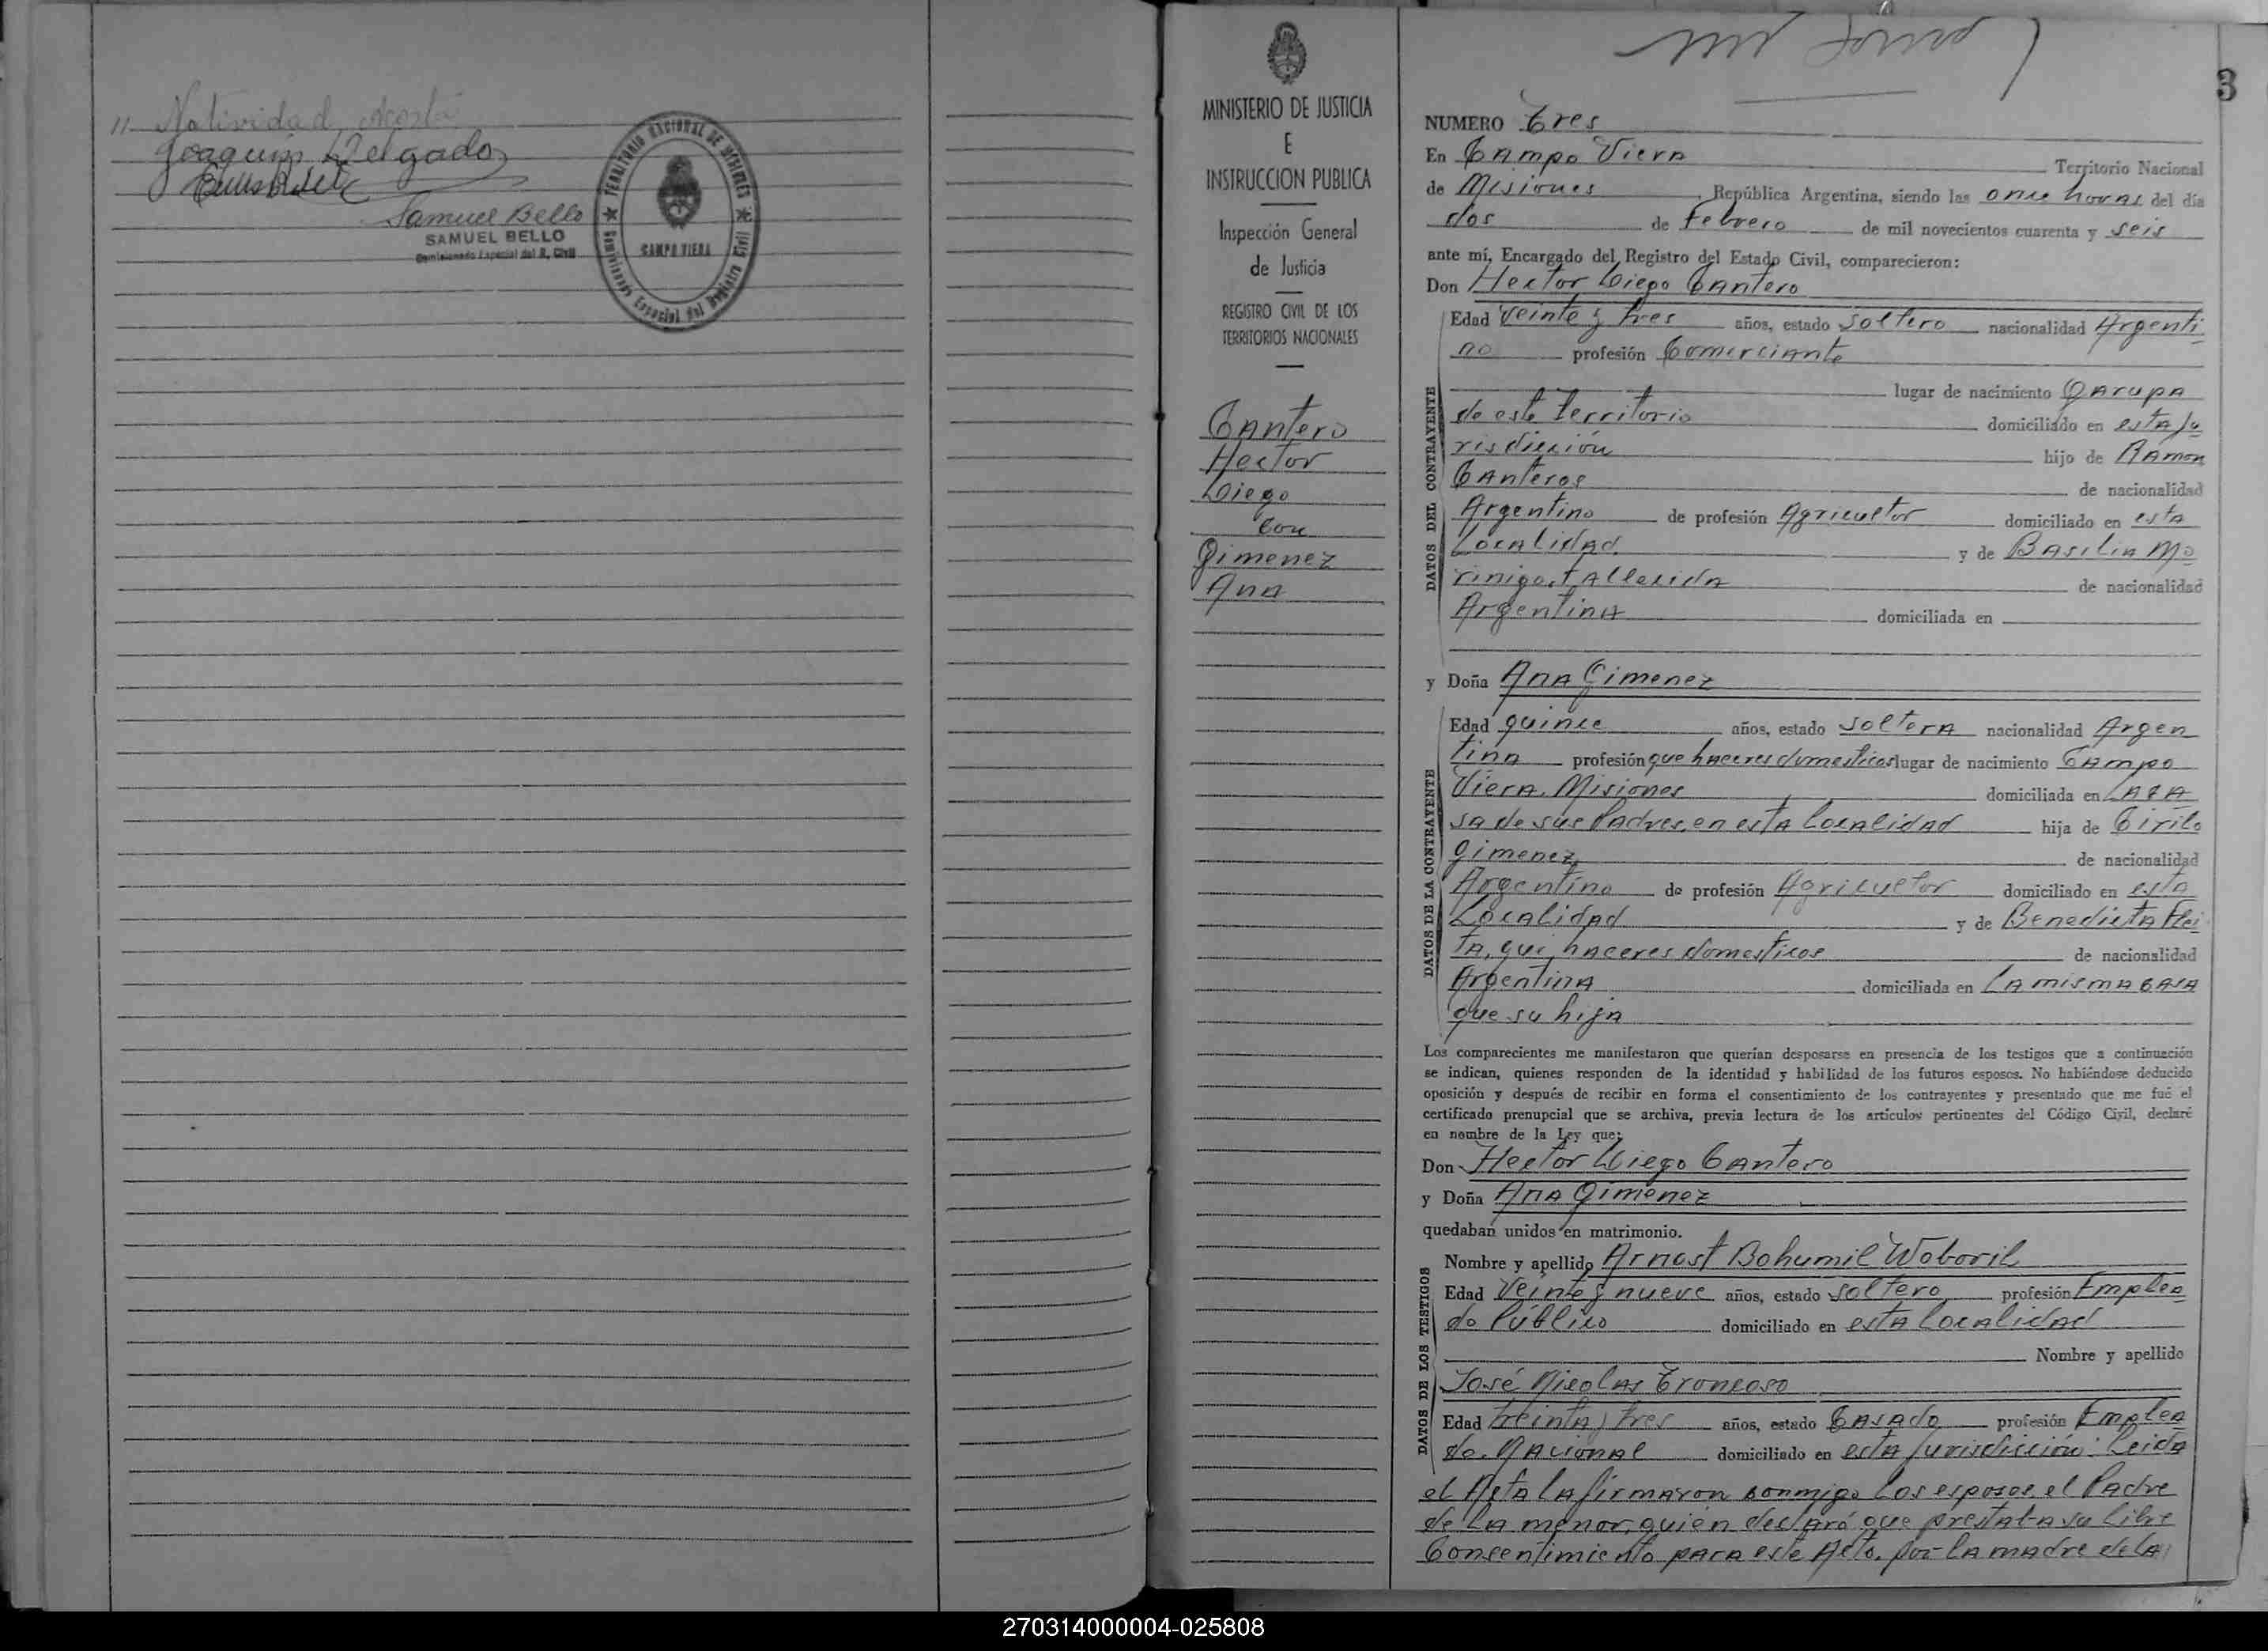 11- Natividad Acosta
Joaquin Delgado
Samuel Bello
SAMUEL BELLO
Comisionado Especial del R. Civil
TERRITORIO NACIONAL DE MISIONES
CAMPO VIERA
Comisionado Especial del Registro Civil
MINISTERIO DE JUSTICIA
E
INSTRUCCION PUBLICA
Inspección General
de Justicia
REGISTRO CIVIL DE LOS
TERRITORIOS NACIONALES
Cantero
Hector
Diego
con
Gimenez
Ana
3
NUMERO Tres
En Campo Viera Territorio Nacional
de Misiones República Argentina, siendo las once horas del día
dos de Febrero de mil novecientos cuarenta y seis
ante mí, Encargado del Registro del Estado Civil, comparecieron:
Don Hector Diego Cantero
DATOS DEL CONTRAYENTE
Edad Veinte y tres años, estado Soltero nacionalidad Argenti
no profesión Comerciante
lugar de nacimiento Garupa
de este territorio domiciliado en esta Ju
risdicción hijo de Ramon
Canteros de nacionalidad
Argentino de profesión Agricultor domiciliado en esta
Localidad y de Basilia Mo
rinigo, fallecida de nacionalidad
Argentina domiciliada en
y Doña Ana Gimenez
DATOS DE LA CONTRAYENTE
Edad quince años, estado soltera nacionalidad Argen
tina profesión que haceres domesticos lugar de nacimiento Campo
Viera. Misiones domiciliada en La Ca
sa de sus Padres, en esta Localidad hija de Cirilo
Gimenez de nacionalidad
Argentino de profesión Agricultor domiciliado en esta
Localidad y de Benedicta Flei
ta, que haceres domesticos de nacionalidad
Argentina domiciliada en La misma casa
que su hija
Los comparecientes me manifestaron que querían desposarse en presencia de los testigos que a continuación
se indican, quienes responden de la identidad y habilidad de los futuros esposos. No habiéndose deducido
oposición y después de recibir en forma el consentimiento de los contrayentes y presentado que me fué el
certificado prenupcial que se archiva, previa lectura de los artículos pertinentes del Código Civil, declaré
en nombre de la Ley que:
Don Hector Diego Cantero
y Doña Ana Gimenez
quedaban unidos en matrimonio.
DATOS DE LOS TESTIGOS
Nombre y apellido Arnost Bohumil Woboril
Edad Veinte y nueve años, estado soltero profesión Emplea
do Público domiciliado en esta Localidad
Nombre y apellido
José Nicolas Troncoso
Edad treinta y tres años, estado Casado profesión Emplea
do. Nacional domiciliado en esta Jurisdicción: Leida
el Acta la firmaron conmigo los esposos, el Padre
de la menor, quien declaró que prestaba su libre
Consentimiento para este Acto. por la madre de la
270314000004-025808